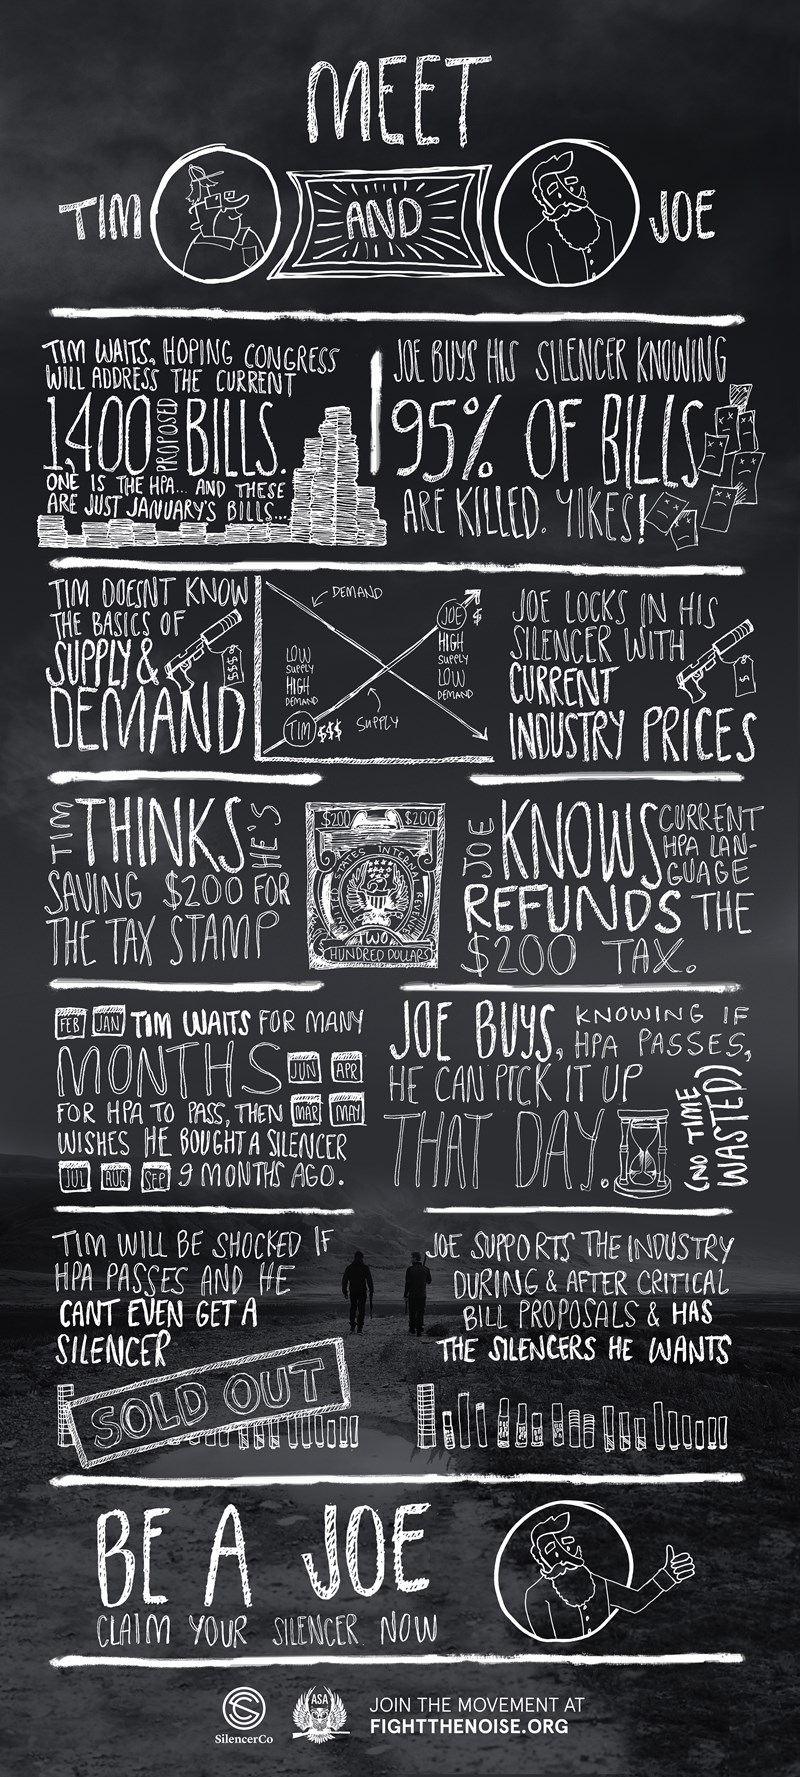 MEET
TIM
AND
JOE
TIM WAITS, HOPING CONGRESS
WILL ADDRESS THE CURRENT
1,400 PROPOSED BILLS.
ONE IS THE HPA... AND THESE
ARE JUST JANUARY'S BILLS...
JOE BUYS HIS SILENCER KNOWING
95% OF BILLS
ARE KILLED. YIKES!
TIM DOESN'T KNOW
THE BASICS OF
SUPPLY &
DEMAND
$$$
DEMAND
JOE $
HIGH
SUPPLY
LOW
DEMAND
LOW
SUPPLY
HIGH
DEMAND
TIM $$$
SUPPLY
JOE LOCKS IN HIS
SILENCER WITH
CURRENT
INDUSTRY PRICES
$
TIM THINKS HE'S
SAVING $200 FOR
THE TAX STAMP
$200 $200
UNITED STATES INTERNAL REVENUE
TWO
HUNDRED DOLLARS
JOE KNOWS CURRENT
HPA LAN-
GUAGE
REFUNDS THE
$200 TAX.
FEB JAN TIM WAITS FOR MANY
MONTHS JUN APR
FOR HPA TO PASS, THEN MAR MAY
WISHES HE BOUGHT A SILENCER
JUL AUG SEP 9 MONTHS AGO.
JOE BUYS, KNOWING IF
HPA PASSES,
HE CAN PICK IT UP
THAT DAY.
(NO TIME
WASTED)
TIM WILL BE SHOCKED IF
HPA PASSES AND HE
CANT EVEN GET A
SILENCER
SOLD OUT
JOE SUPPORTS THE INDUSTRY
DURING & AFTER CRITICAL
BILL PROPOSALS & HAS
THE SILENCERS HE WANTS
BE A JOE
CLAIM YOUR SILENCER NOW
SilencerCo
ASA
JOIN THE MOVEMENT AT
FIGHTTHENOISE.ORG